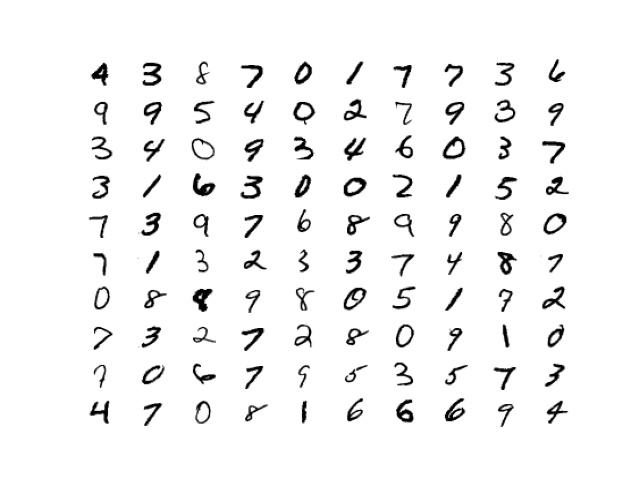 4 3 8 7 0 1 7 7 3 6
9 9 5 4 0 2 7 9 3 9
3 4 0 9 3 4 6 0 3 7
3 1 6 3 0 0 2 1 5 2
7 3 9 7 6 8 9 9 8 0
7 1 3 2 3 3 7 4 8 7
0 8 8 9 8 0 5 1 7 2
7 3 2 7 2 8 0 9 1 0
7 0 6 7 9 5 3 5 7 3
4 7 0 8 1 6 6 6 9 4